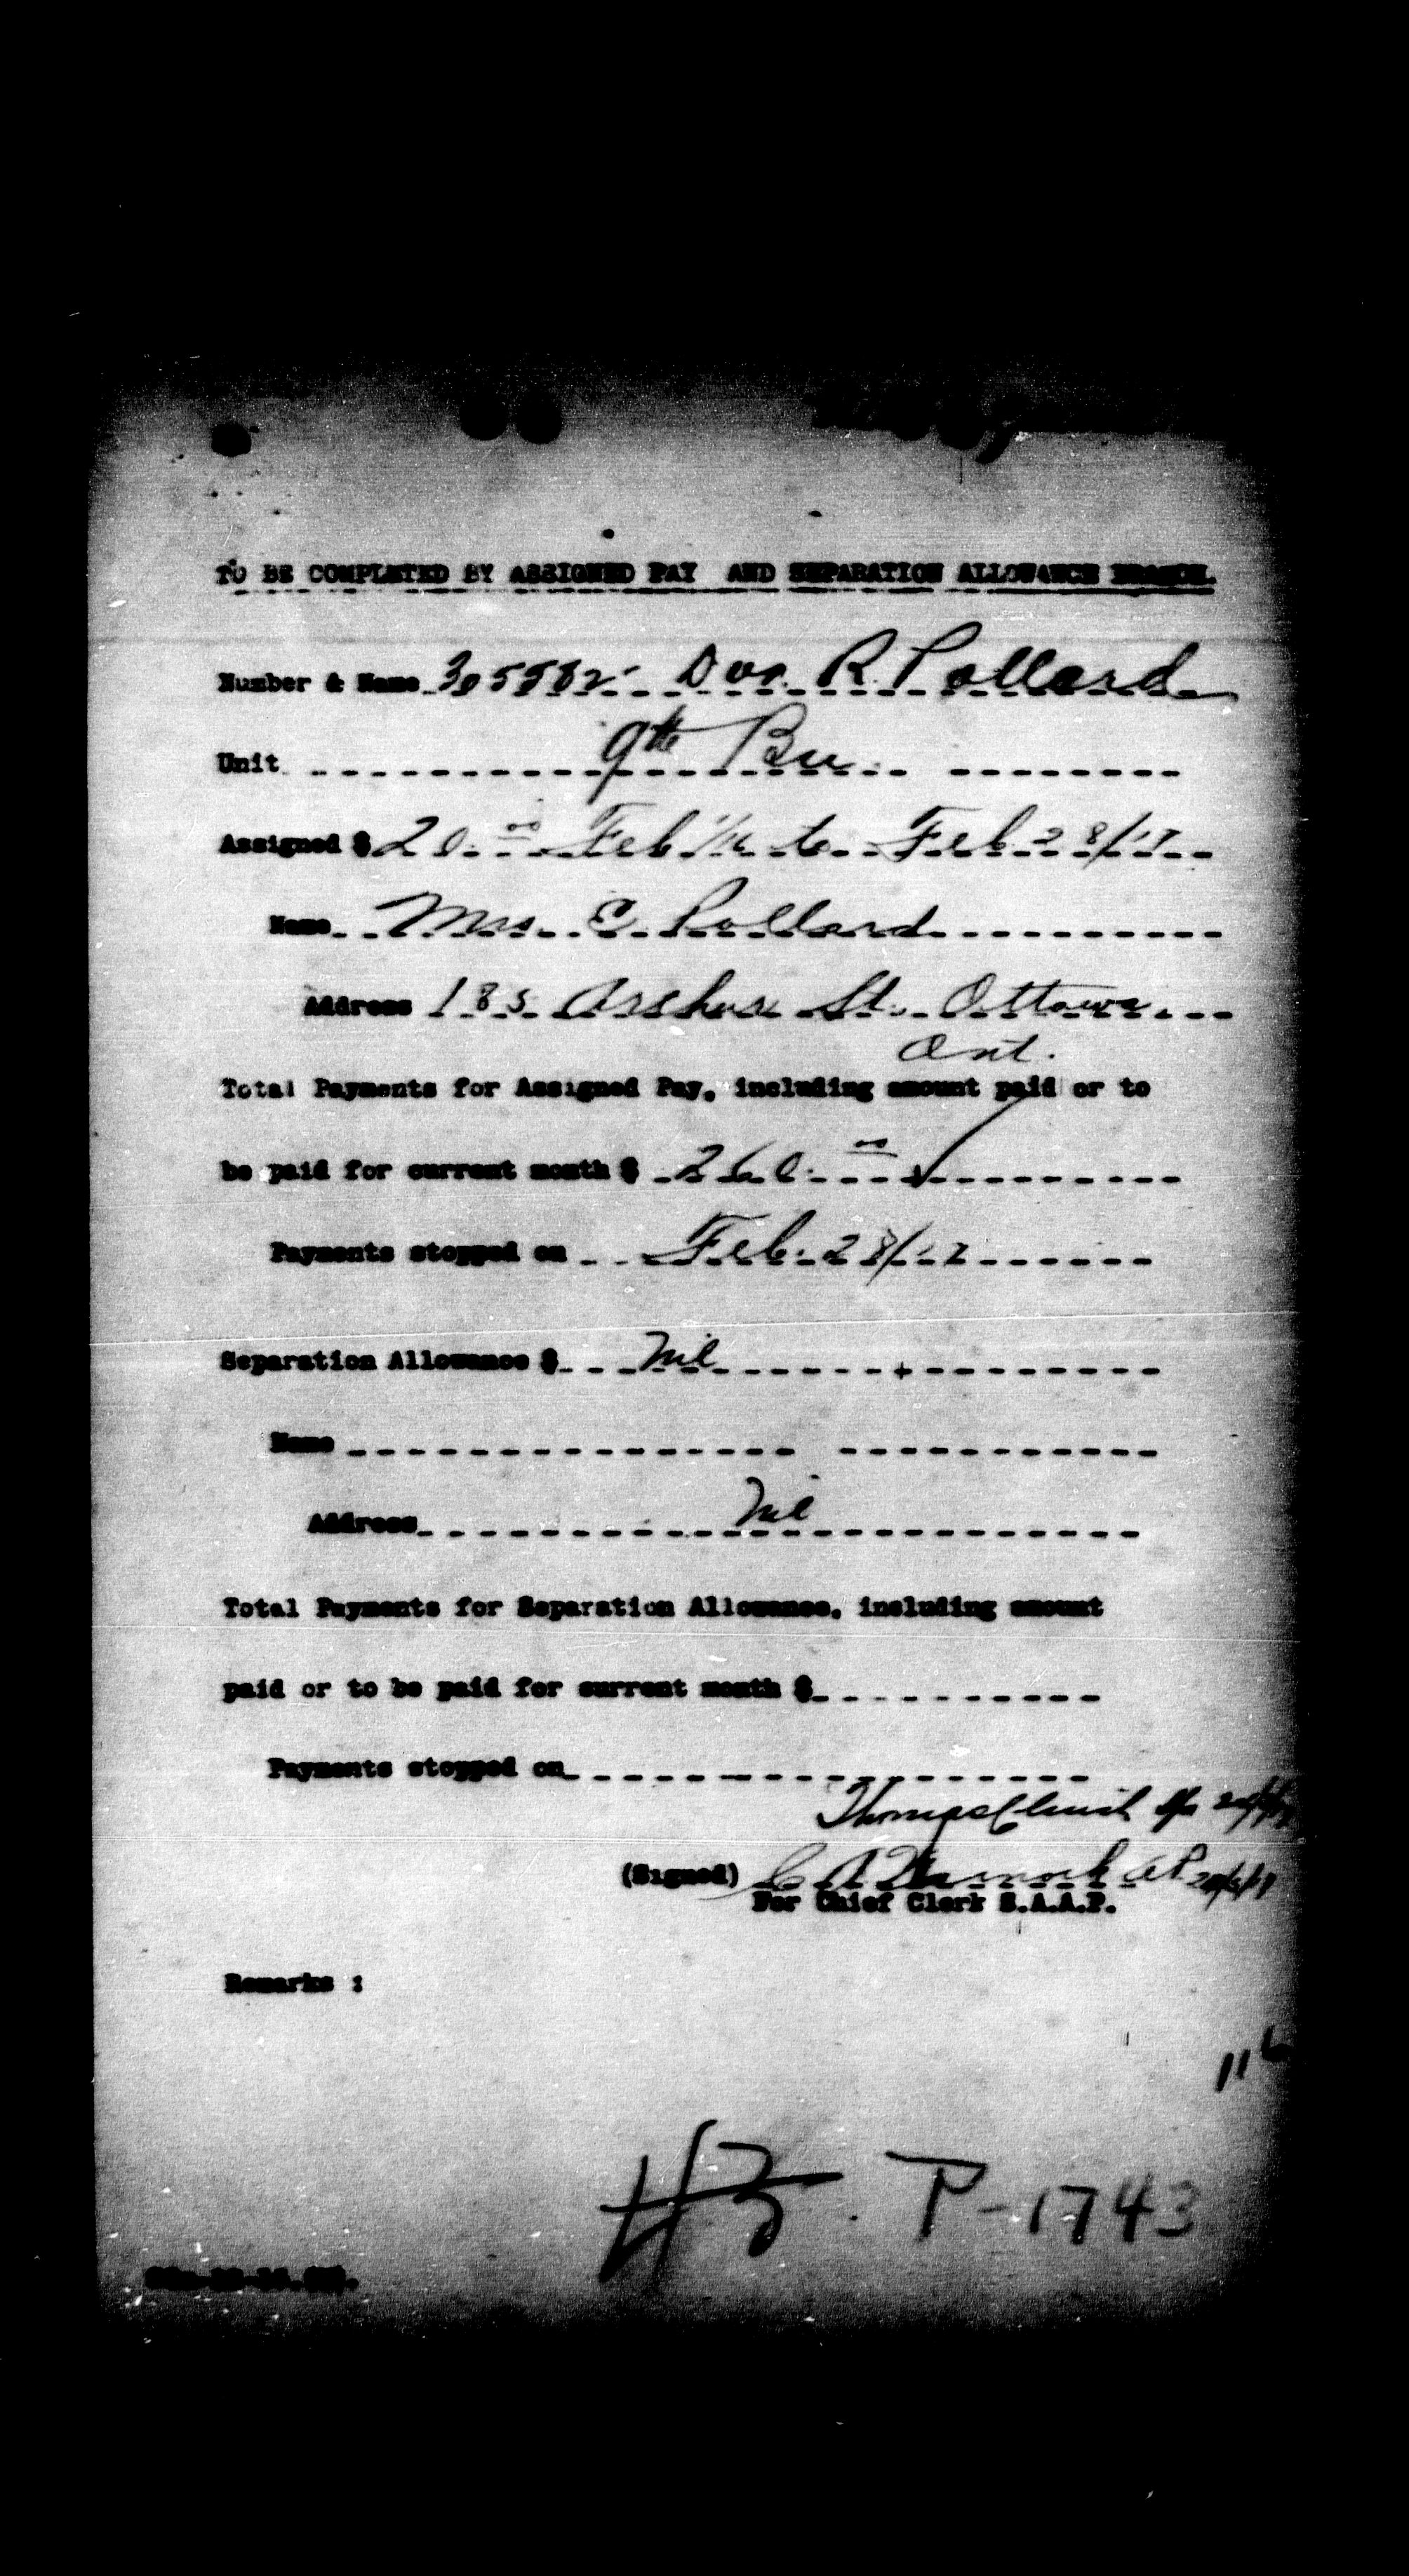 TO BE COMPLETED BY ASSIGNED PAY AND SEPARATION ALLOWANCE BRANCH.
Number & Name 305582 Dvr. R. Pollard
Unit 9th
Assigned $ 20.00 Feb 1/16 to Feb 28/17
Name Mrs. E. Pollard
Address 185 Arthur St. Ottawa.
Ont.
Total Payments for Assigned Pay, including amount paid or to
be paid for current month $ 260.00
Payments stopped on Feb. 28/17
Separation Allowance $ Nil
Name
Address Nil
Total Payments for Separation Allowance, including amount
paid or to be paid for current month $
Payments stopped on
(Signed) C A
For Chief Clerk S.A.A.P.
Remarks :
P-1743